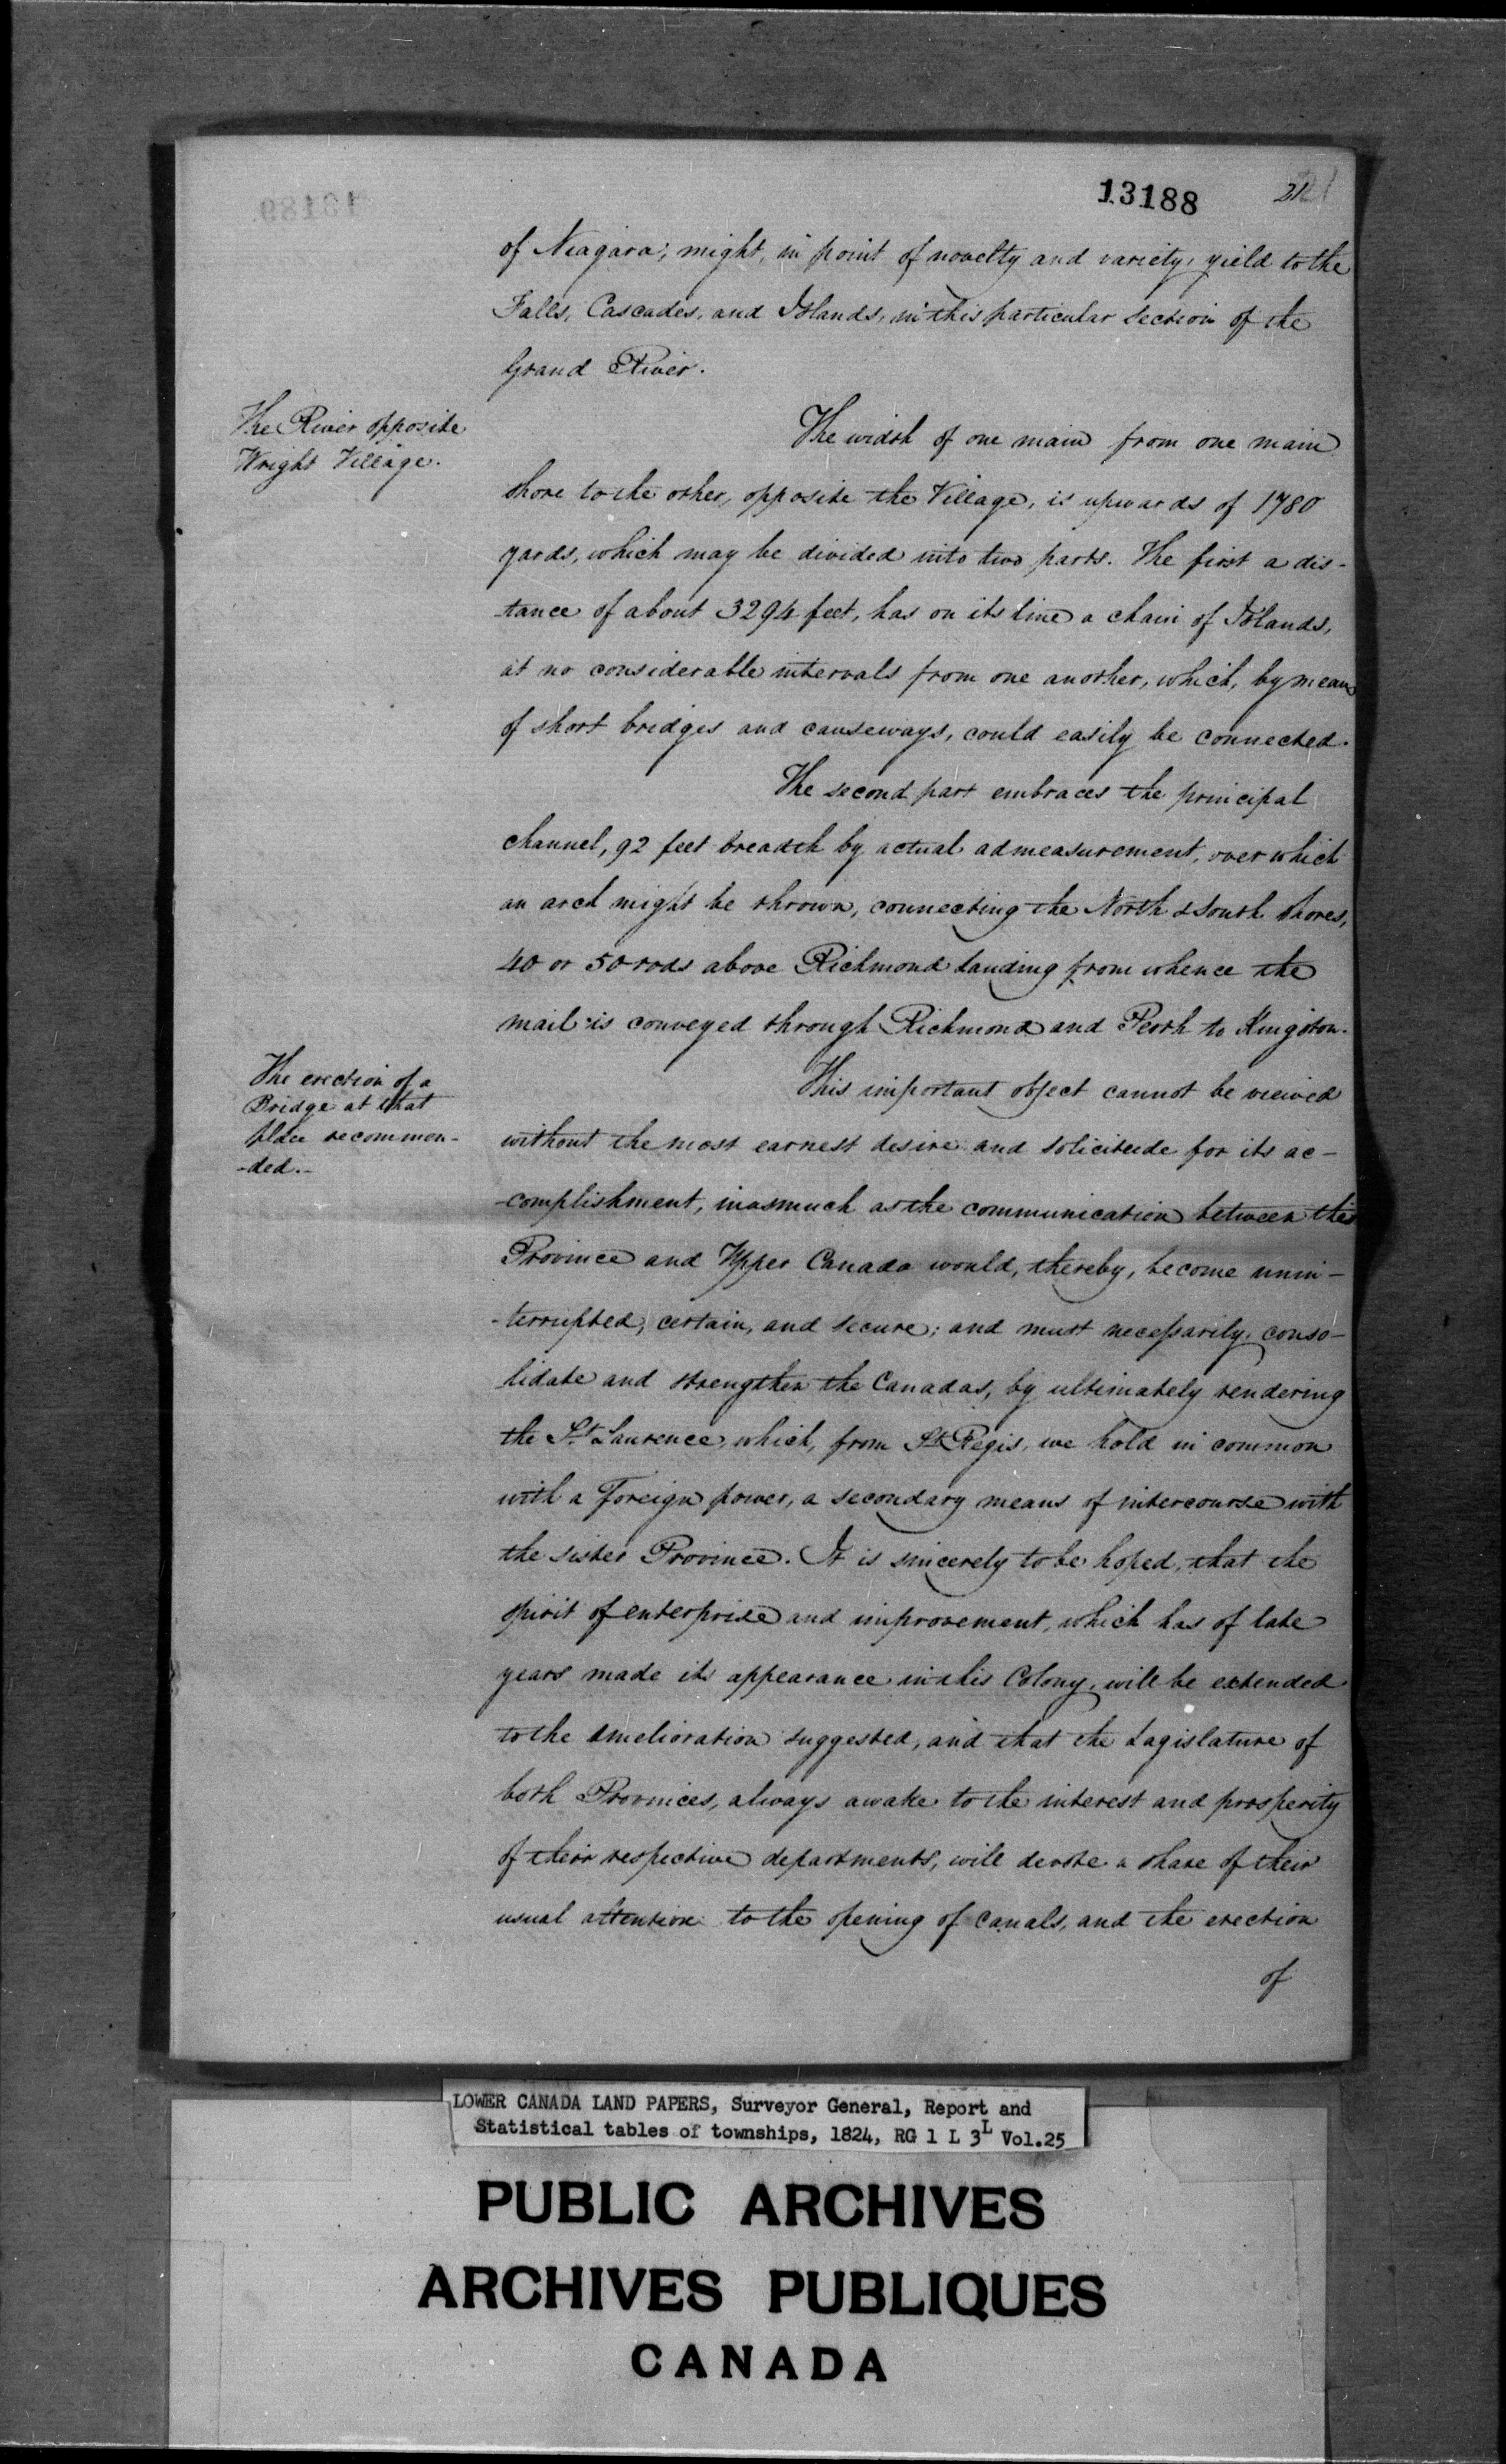 13188
21
of Niagara; might, in point of novelty and variety, yield to the
Falls, Cascades, and Islands, in this particular section of the
Grand River.
The River opposite
Wright Village.
The width of one main from one main
shore to the other, opposite the Village, is upwards of 1780
yards, which may be divided into two parts. The first a dis-
-tance of about 3294 feet, has on its line a chain of Islands,
at no considerable intervals from one another, which, by means
of short bridges and causeways, could easily be connected.
The second part embraces the principal
channel, 92 feet breadth by actual admeasurement, over which
an arch might be thrown, connecting the North & South Shores,
40 or 50 rods above Richmond Landing from whence the
mail is conveyed through Richmond and Perth to Kingston.
The erection of a
Bridge at that
place recommen-
-ded.-
This important object cannot be viewed
without the most earnest desire and solicitude for its ac-
-complishment, inasmuch as the communication between this
Province and Upper Canada would, thereby, become unin-
-terrupted, certain, and secure; and must necessarily conso-
lidate and strengthen the Canadas, by ultimately rendering
the St. Laurence, which, from St. Regis, we hold in common
with a Foreign power, a secondary means of intercourse with
the sister Province. It is sincerely to be hoped, that the
spirit of enterprise and improvement, which has of late
years made its appearance in this Colony, will be extended
to the amelioration suggested, and that the Lagislature of
both Provinces, always awake to the interest and prosperity
of their respective departments, will devote a share of their
usual attention to the opening of canals, and the erection
of
LOWER CANADA LAND PAPERS, Surveyor General, Report and
Statistical tables of townships, 1824, RG 1 L 3L Vol.25
PUBLIC ARCHIVES
ARCHIVES PUBLIQUES
CANADA